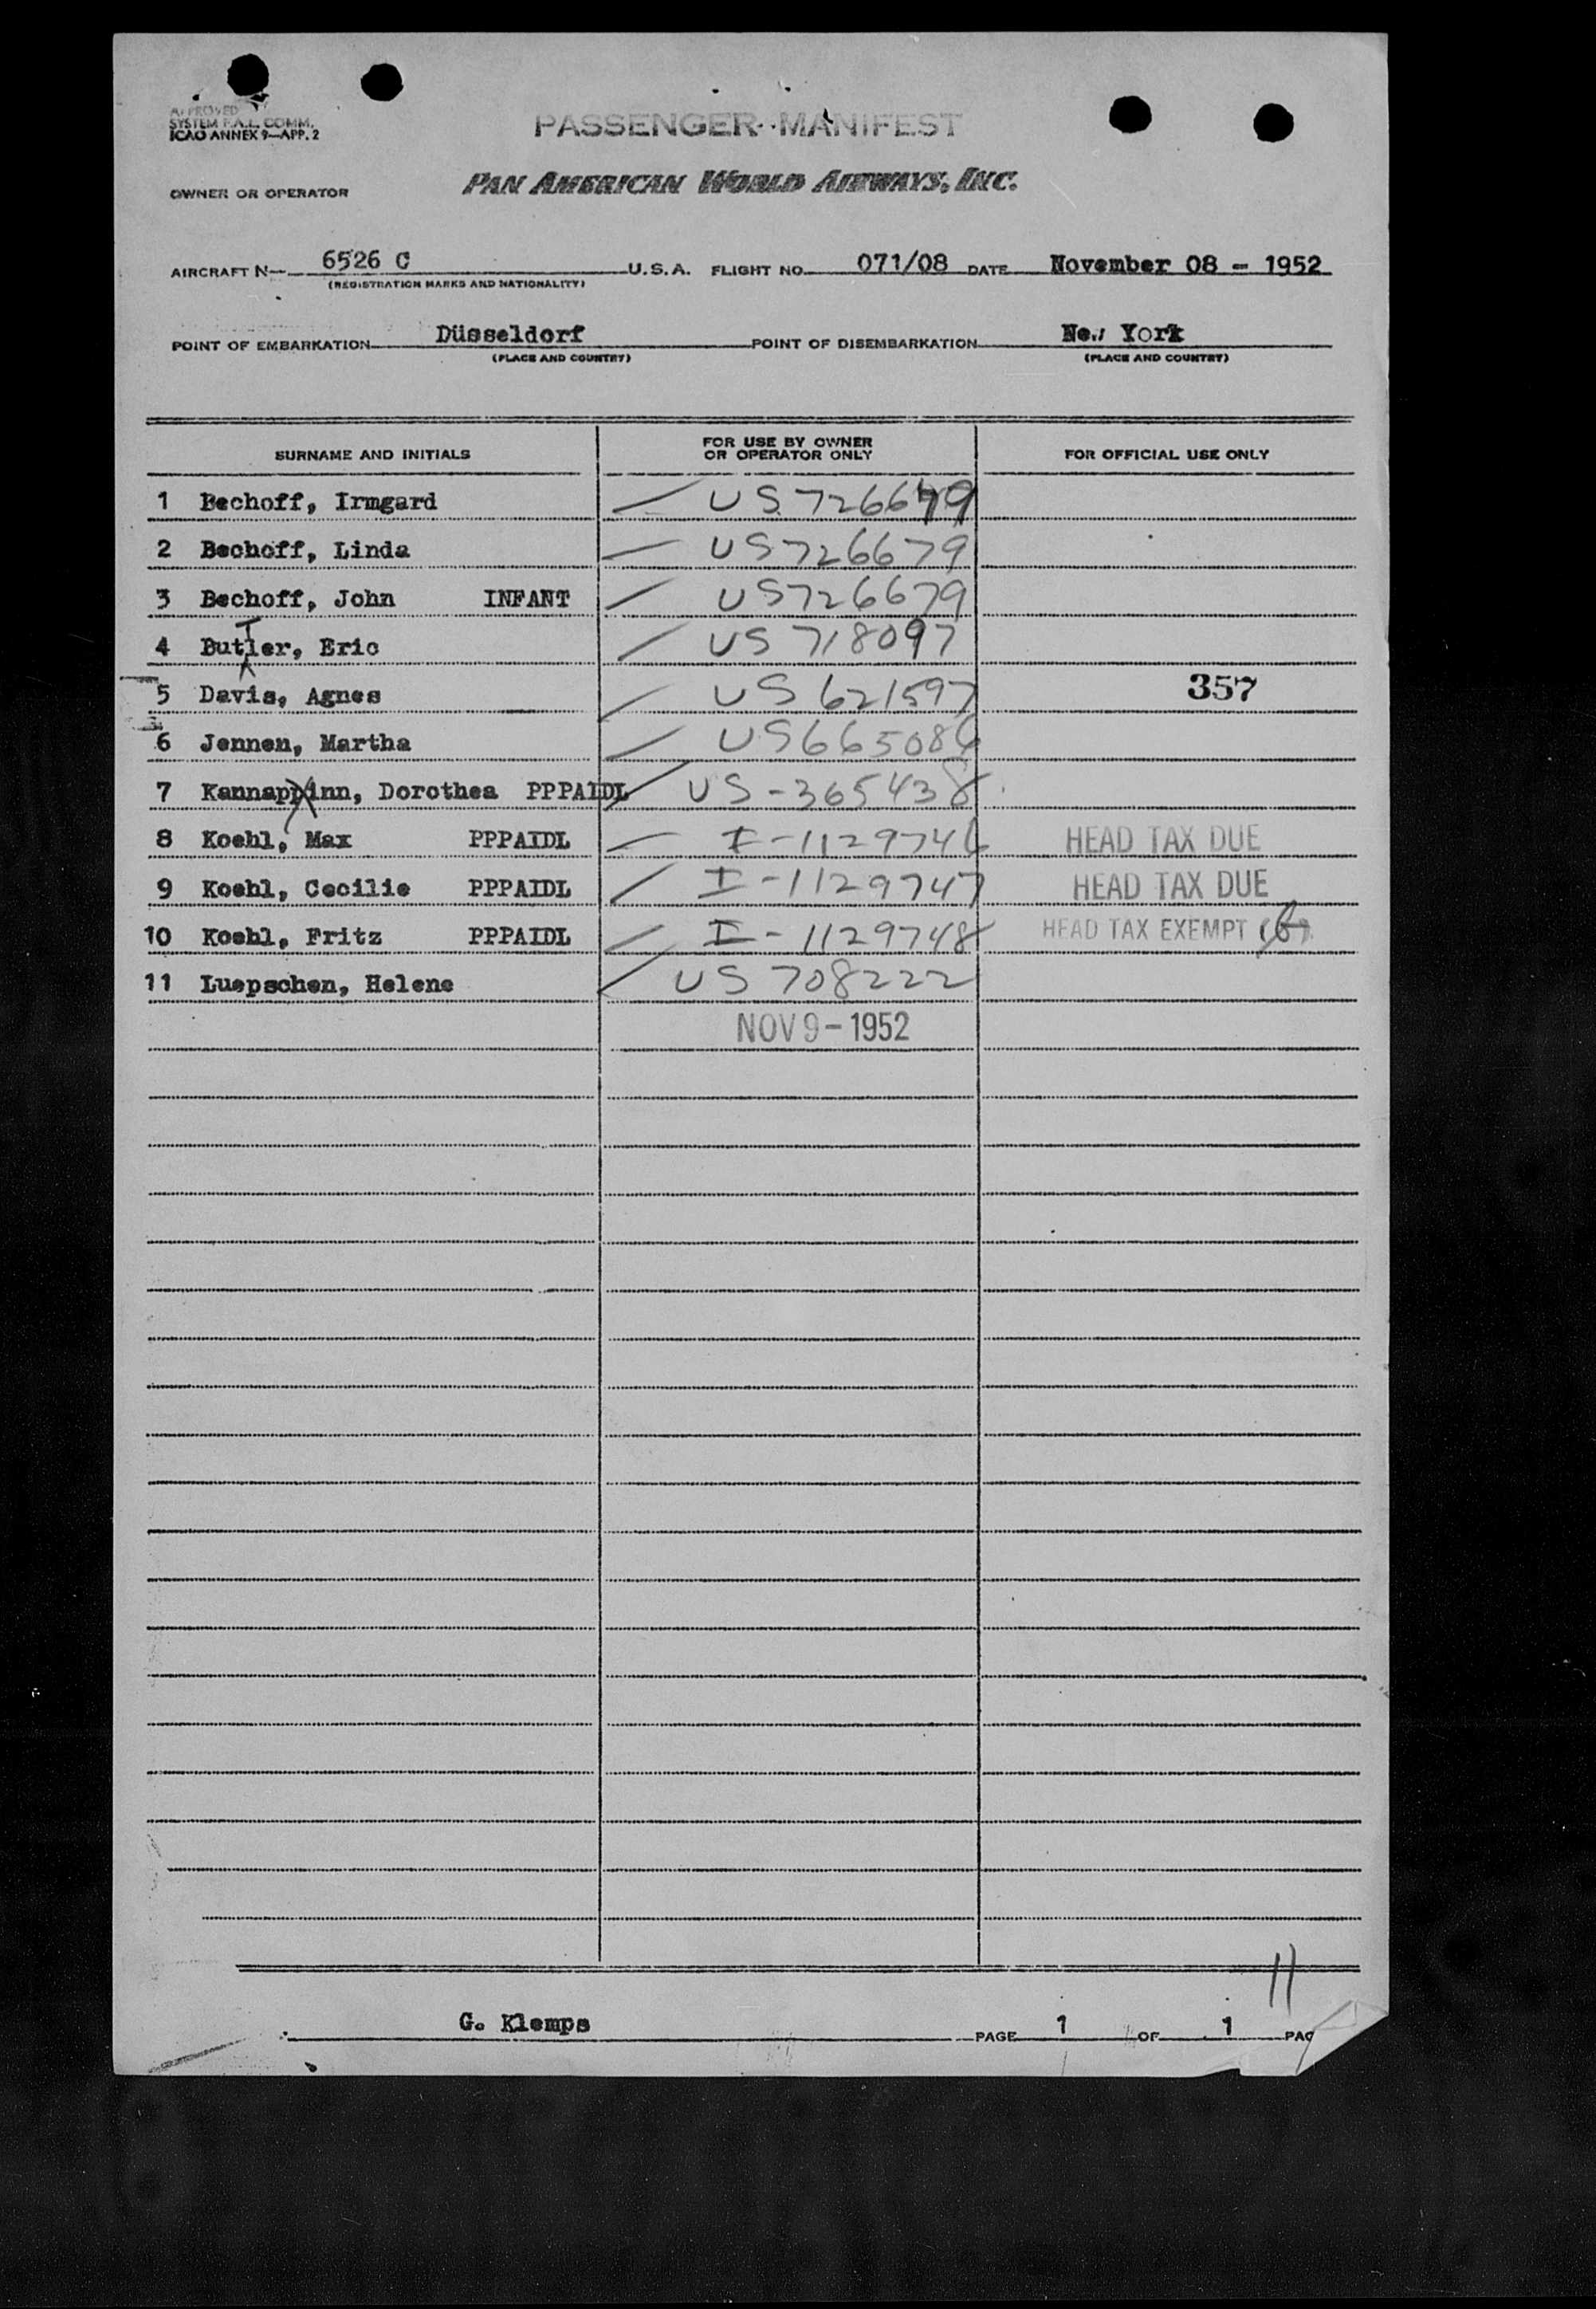 APPROVED
SYSTEM F.A.L. COMM.
ICAO ANNEX 9—APP. 2
PASSENGER MANIFEST
OWNER OR OPERATOR PAN AMERICAN WORLD AIRWAYS, INC.
AIRCRAFT N— 6526 C U.S.A. FLIGHT NO. 071/08 DATE November 08 - 1952
(REGISTRATION MARKS AND NATIONALITY)
POINT OF EMBARKATION Düsseldorf POINT OF DISEMBARKATION New York
(PLACE AND COUNTRY) (PLACE AND COUNTRY)
SURNAME AND INITIALS FOR USE BY OWNER OR OPERATOR ONLY FOR OFFICIAL USE ONLY
1 Bechoff, Irmgard US 726679
2 Bechoff, Linda US726679
3 Bechoff, John INFANT US726679
4 Butler, Eric US 718097
T
5 Davis, Agnes US 621597 357
6 Jennen, Martha US665086
7 Kannappinn, Dorothea PPPAIDL US-365438
8 Koehl, Max PPPAIDL I-1129746 HEAD TAX DUE
9 Koehl, Cecilie PPPAIDL I-1129747 HEAD TAX DUE
10 Koehl, Fritz PPPAIDL I-1129748 HEAD TAX EXEMPT
11 Luepschen, Helene US 708222
NOV 9-1952
11
G. Klemps PAGE 1 OF 1 PAG